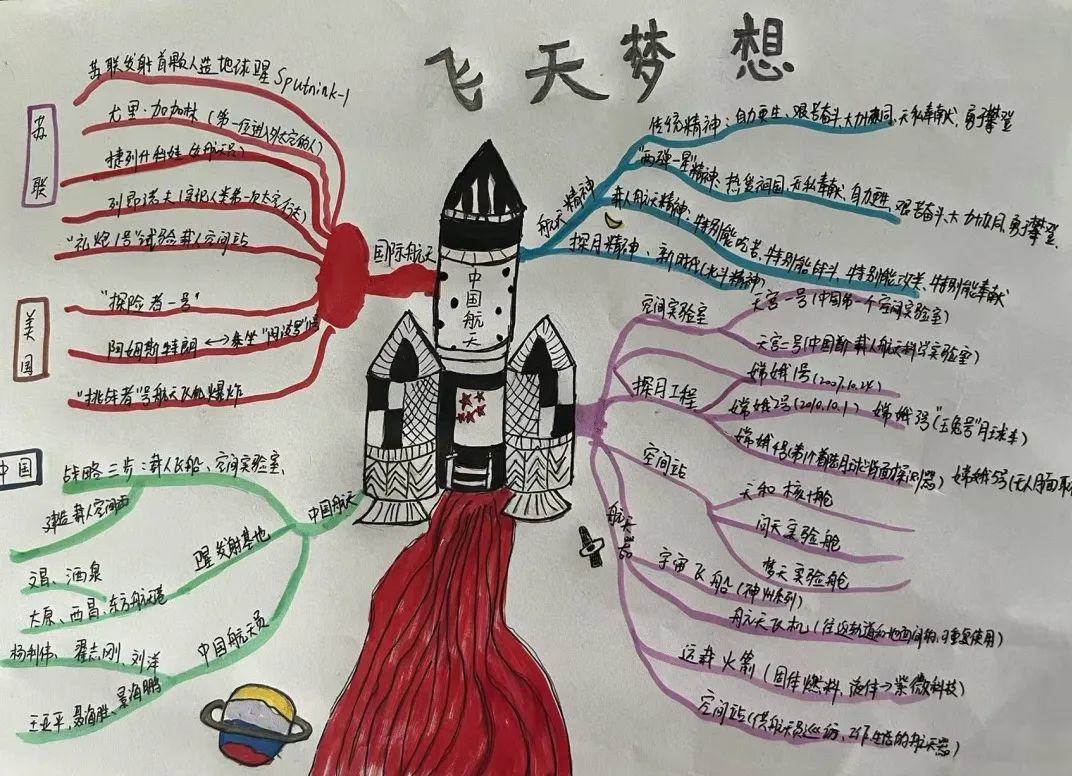 飞天梦想
苏联
苏联发射首颗人造地球卫星 Sputnink-1
尤里·加加林（第一位进入外太空的人）
捷列什科娃（女航天员）
列昂诺夫（实现人类第一次太空行走）
"礼炮1号"试验载人空间站
国际航天
美国
"探险者一号"
阿姆斯特朗 ↔ 乘坐"阿波罗"
"挑战者"号航天飞机爆炸
中国
战略三步：载人飞船、空间实验室、
建造载人空间
中国航天
发射基地
文昌、酒泉
太原、西昌、东方航天港
中国航天员
杨利伟、翟志刚、刘洋
王亚平、聂海胜、景海鹏
中国航天
航天精神
传统精神：自力更生、艰苦奋斗、大力协同、无私奉献、勇于攀登
"两弹一星"精神：热爱祖国、无私奉献、自力更生、艰苦奋斗、大力协同、勇于攀登
载人航天精神：特别能吃苦、特别能战斗、特别能攻关、特别能奉献
探月精神、新时代（北斗精神）
空间实验室
天宫一号（中国第一个空间实验室）
天宫二号（中国首 载人航天科学实验室）
探月工程
嫦娥1号（2007.10.24）
嫦娥2号（2010.10.1） 嫦娥3号"（玉兔号"月球车）
嫦娥4号（第1个着陆月球背面探测器） 嫦娥5号（无人月面取
空间站
天和核心舱
问天实验舱
梦天实验舱
航天
宇宙飞船（神州系列）
航天飞机（往返轨道和地面间的、可重复使用）
运载火箭（固体燃料、液体→紫微科技）
空间站（供航天员巡访、工作生活的航天器）